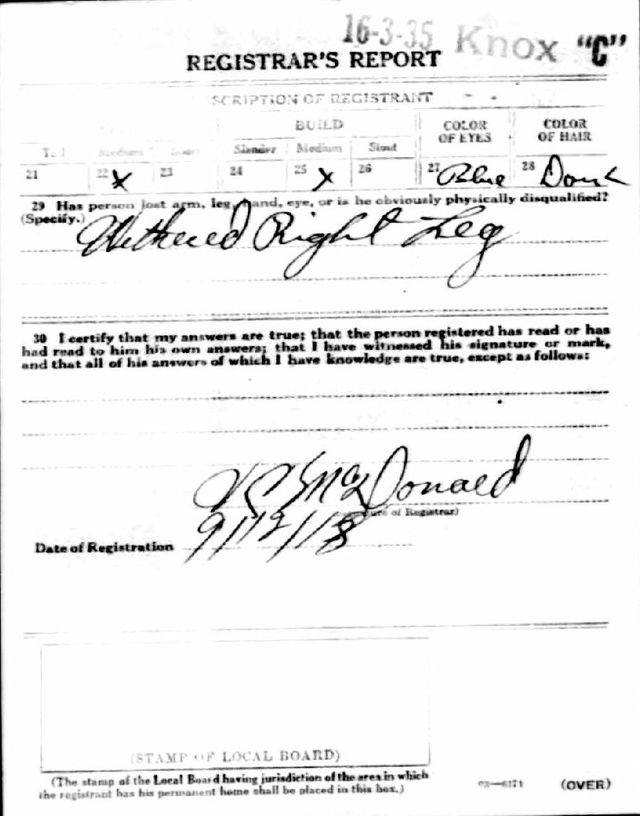 16-3-35 Knox "C"
REGISTRAR'S REPORT
SCRIPTION OF REGISTRANT
BUILD
COLOR OF EYES
COLOR OF HAIR
Medium Slender Medium Stout
21 22 x 23 24 25 x 26 27 Blue 28 Dark
29 Has person lost arm, leg, hand, eye, or is he obviously physically disqualified?
(Specify.) Withered Right Leg
30 I certify that my answers are true; that the person registered has read or has
had read to him his own answers; that I have witnessed his signature or mark,
and that all of his answers of which I have knowledge are true, except as follows:
McDonald
of Registrar)
Date of Registration 9/12/18
(STAMP OF LOCAL BOARD)
(The stamp of the Local Board having jurisdiction of the area in which
the registrant has his permanent home shall be placed in this box.)
(OVER)